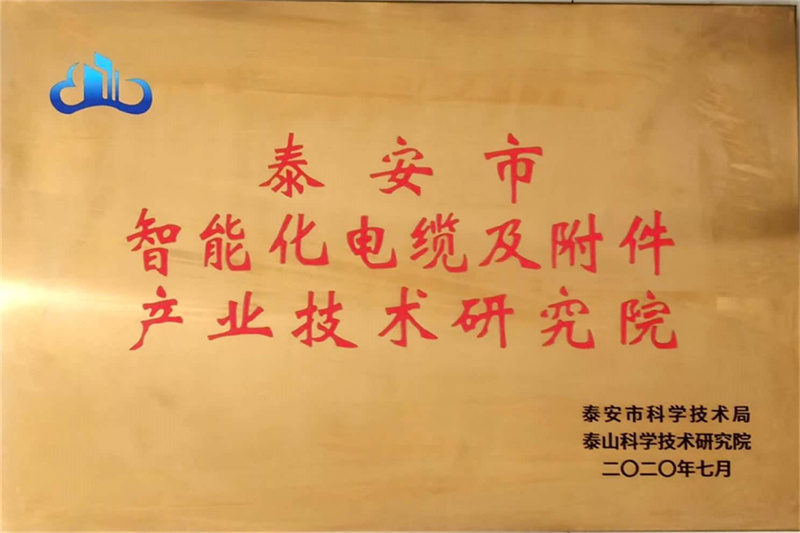 泰安市
智能化电缆及附件
产业技术研究院
泰安市科学技术局
泰山科学技术研究院
二〇二〇年七月